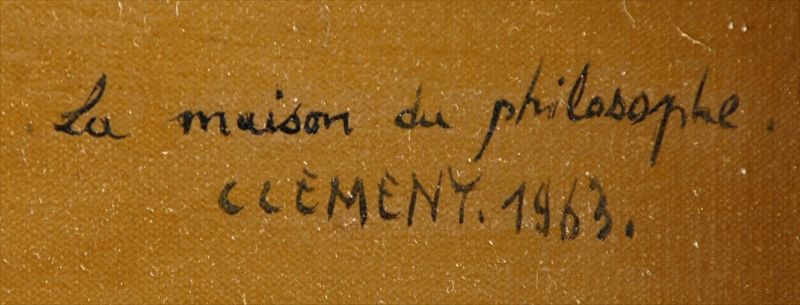 La maison du philosophe.
CLEMENT. 1963.